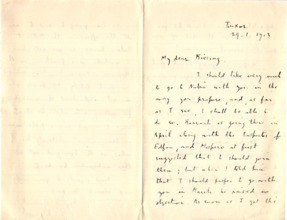 Luxor
29.1 1903
My dear
I should like very much
to go to Nubia with you in the
way you propose, and, as far
as I see, I shall be able to
do so; is going there in
April along with the Inspector of
Edfou, and Maspero at first
suggested that I should join
them; but when I told him
that I should prefer to go with
you in March he raised no
objection. As soon as I get this